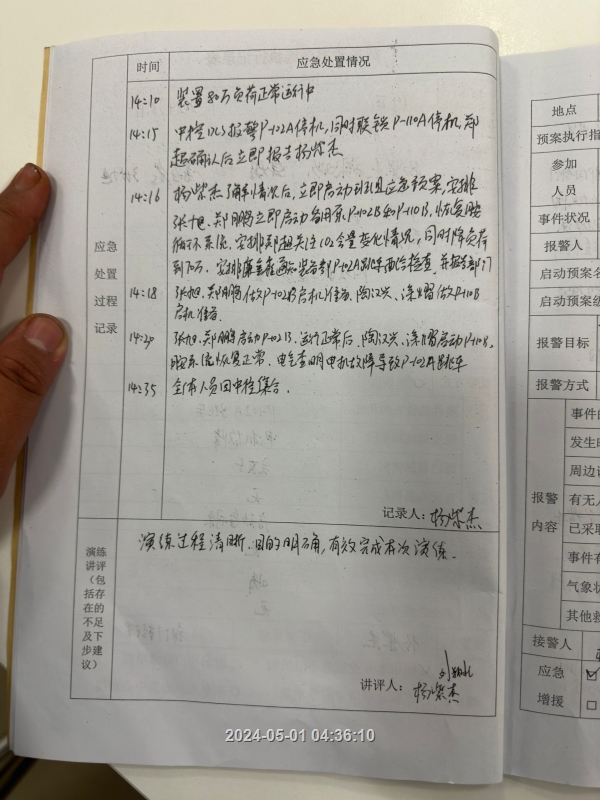 时间 应急处置情况
14:10 装置80万负荷正常运行中
14:15 中控DCS报警P-102A停机,同时联锁P-110A停机,郑
超确认后立即报告杨紫杰
14:16 杨紫杰了解情况后,立即启动应急预案,安排
张旭、郑鹏立即启动备用泵P-102B和P-110B,恢复
循环系统,安排郑超关注CO2含量变化情况,同时降负荷
到70万.安排 通知 P-102A 检查,并
14:18 张旭、郑鹏做P-102B启机准备,陶汉兴、 做P-110B
启机准备.
14:20 张旭、郑鹏启动P-102B,运行正常后,陶汉兴、 启动P-110B,
系统恢复正常.电气查明电机故障导致P-102A跳车
14:35 全体人员回中控集合.
应急
处置
过程
记录
记录人:杨紫杰
演练
讲评
(包
括存
在的
不足
及下
步建
议)
演练过程清晰.目的明确,有效完成本次演练.
讲评人:
杨紫杰
2024-05-01 04:36:10
地点
预案执行指
参加
人员
事件状况
报警人
启动预案名
启动预案级
报警目标
报警方式
报警
内容
事件的
发生时
周边设
有无人
已采取
事件有
气象状
其他救
接警人
应急
增援